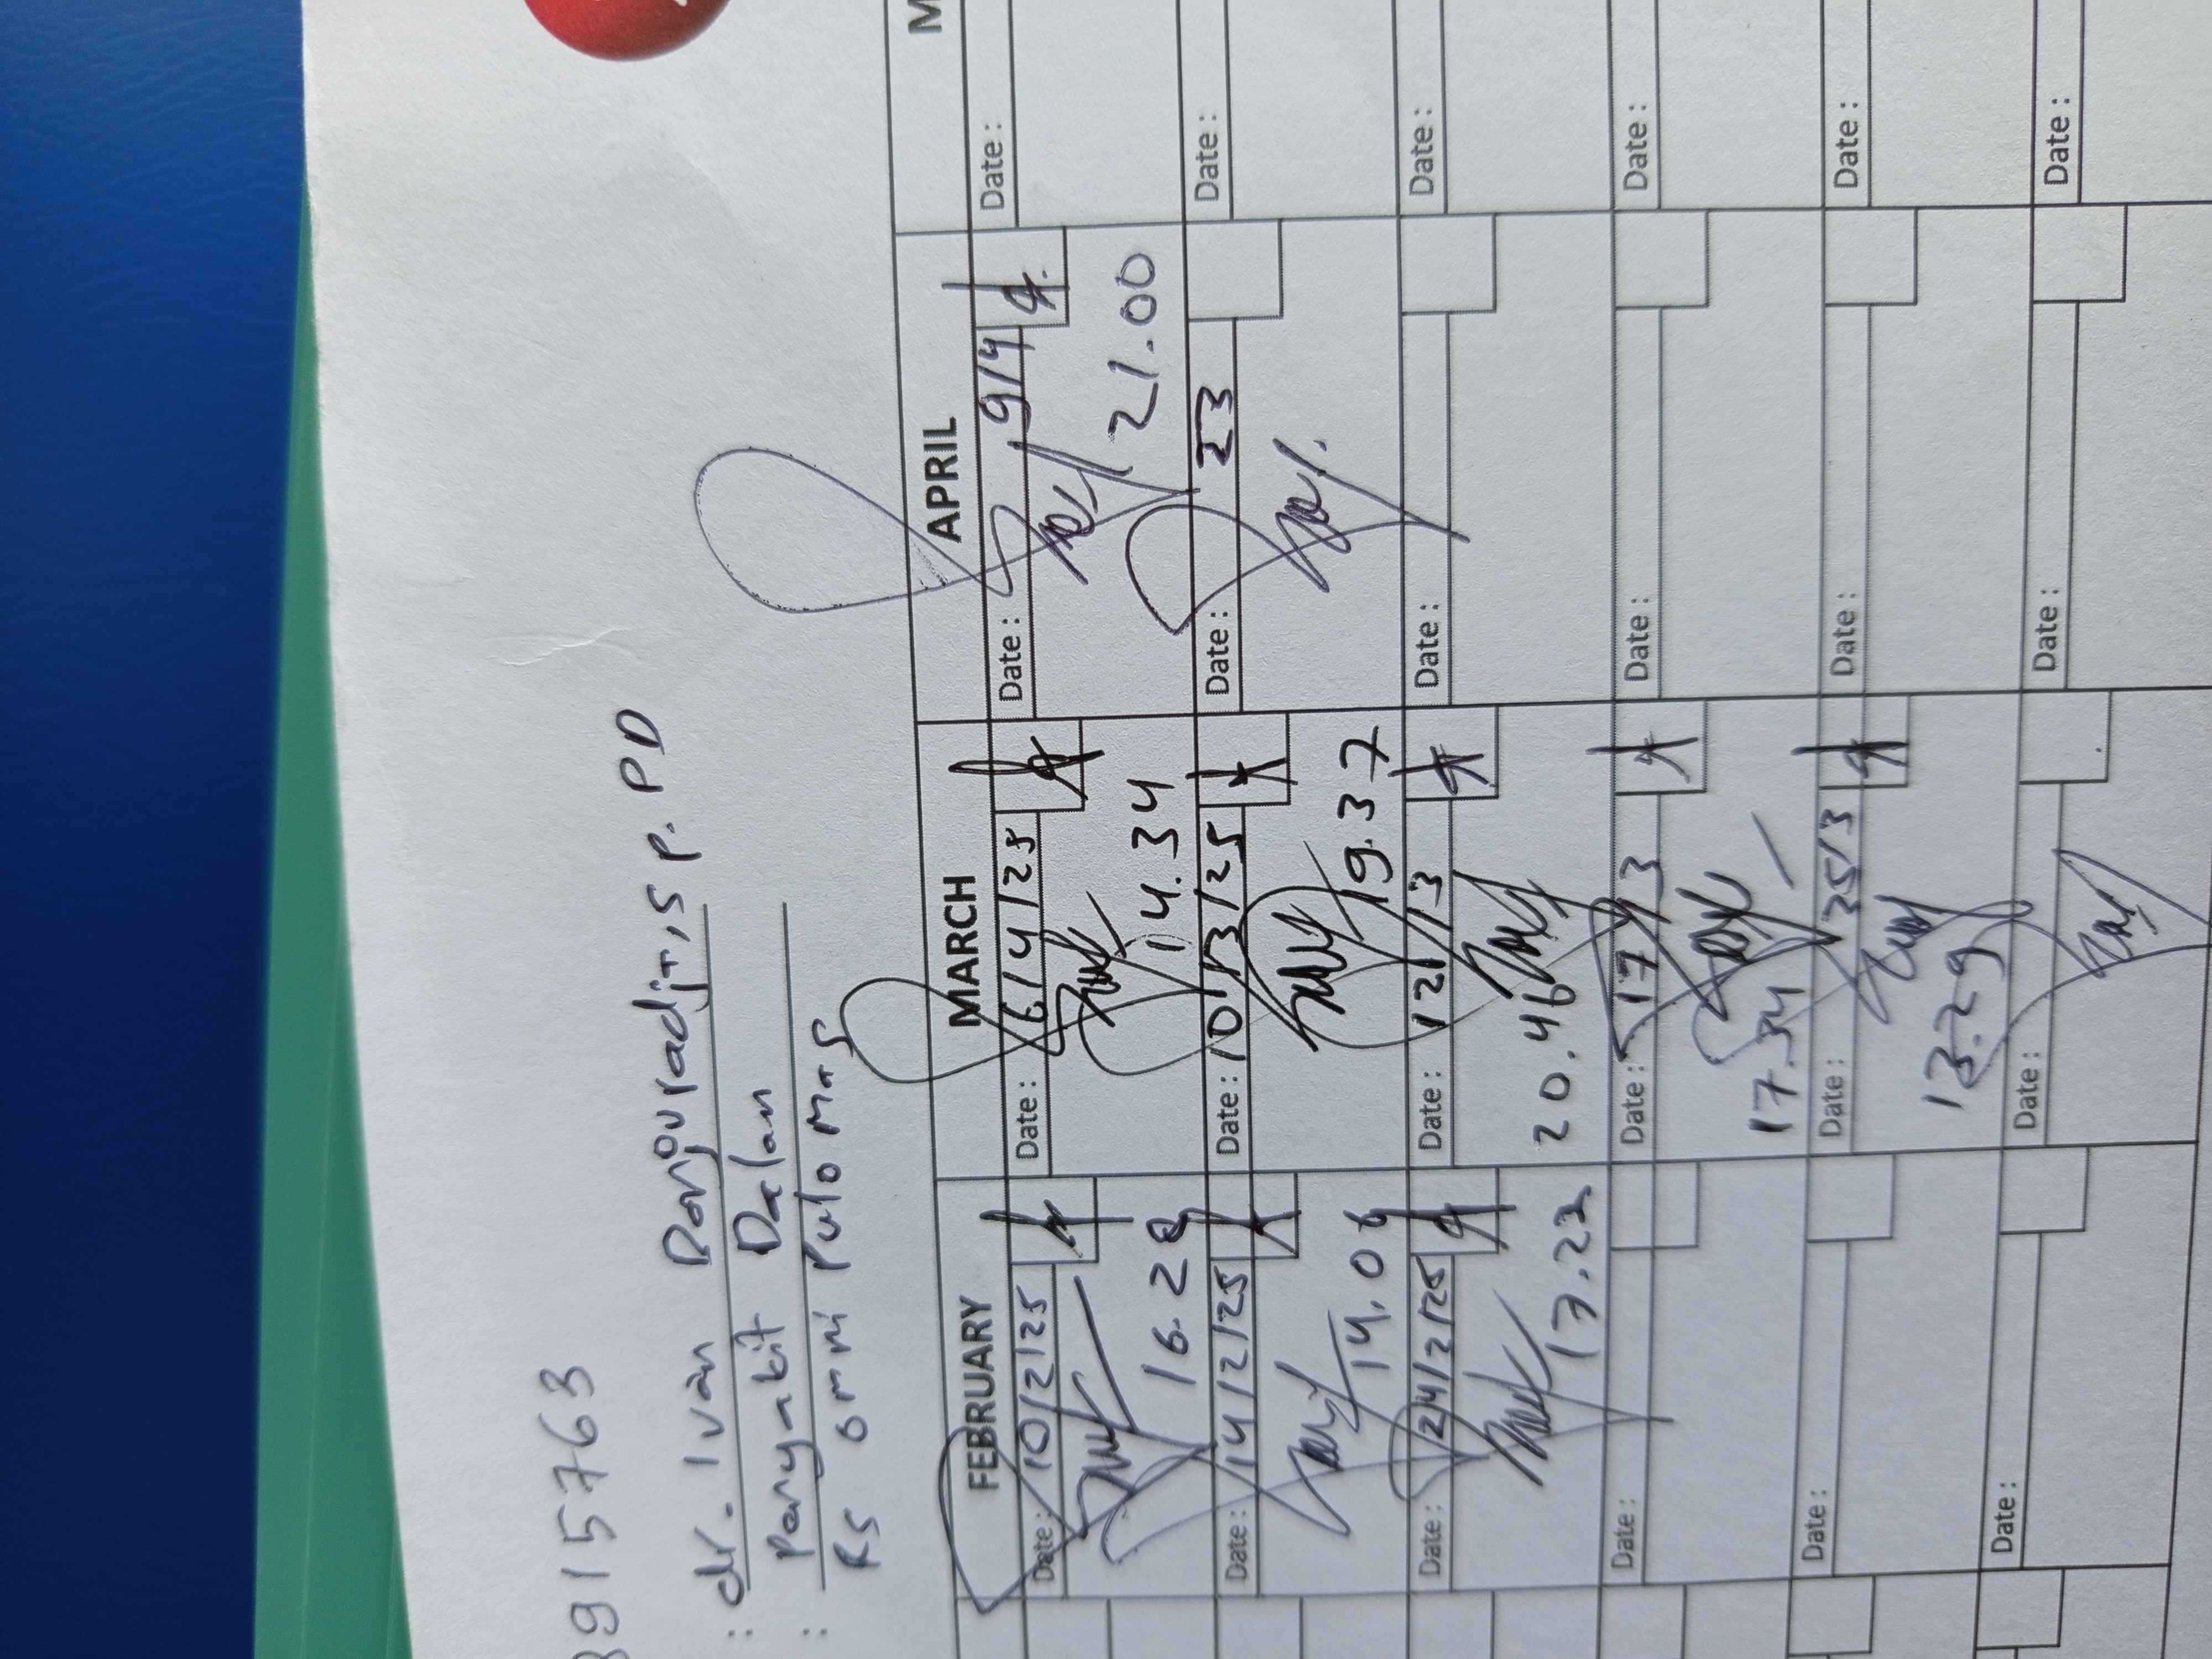 8915763
: dr. Ivan
: Penyakit Dalam
RS Omni Pulo Mas
FEBRUARY MARCH APRIL M
Date: 10/2/25 Date: 6/4/25 Date: 9/4 Date:
16.28 14.34 21.00
Date: 14/2/25 Date: 10/3/25 Date: 23 Date:
14.06 19.37
Date: 24/2/25 Date: 12/3 Date: Date:
17.22 20.46
Date: Date: 17/3 Date: Date:
17.34
Date: Date: 25/3 Date: Date:
13.29
Date: Date: Date: Date: